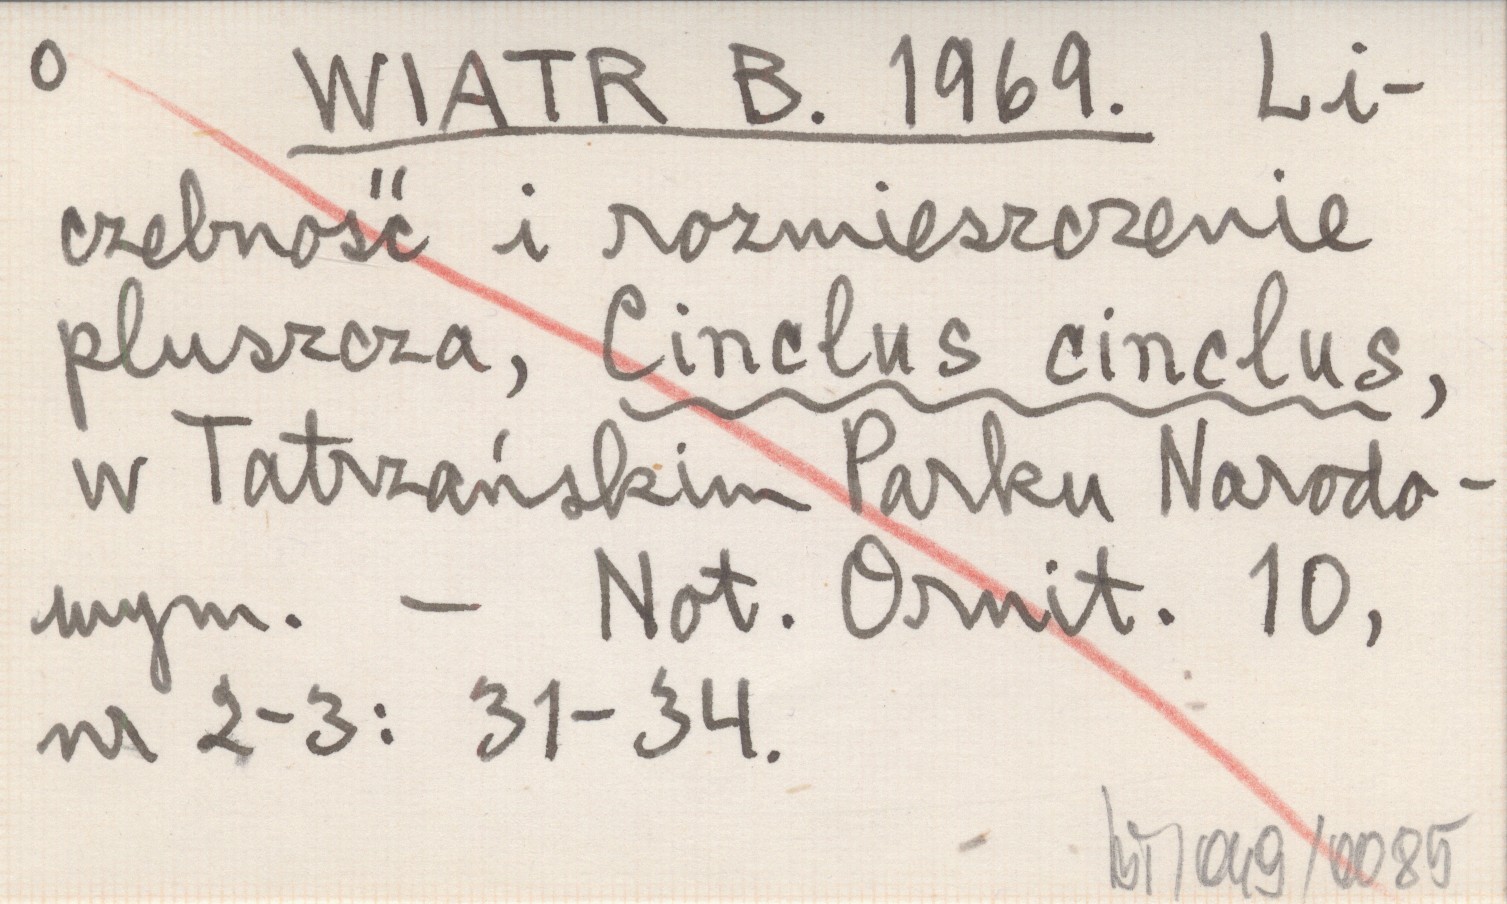 O WIATR B. 1969. Li-
czebność i rozmieszczenie
pluszcza, Cinclus cinclus,
w Tatrzańskim Parku Narodo-
wym. — Not. Ornit. 10,
nr 2-3: 31-34.
/049/0085